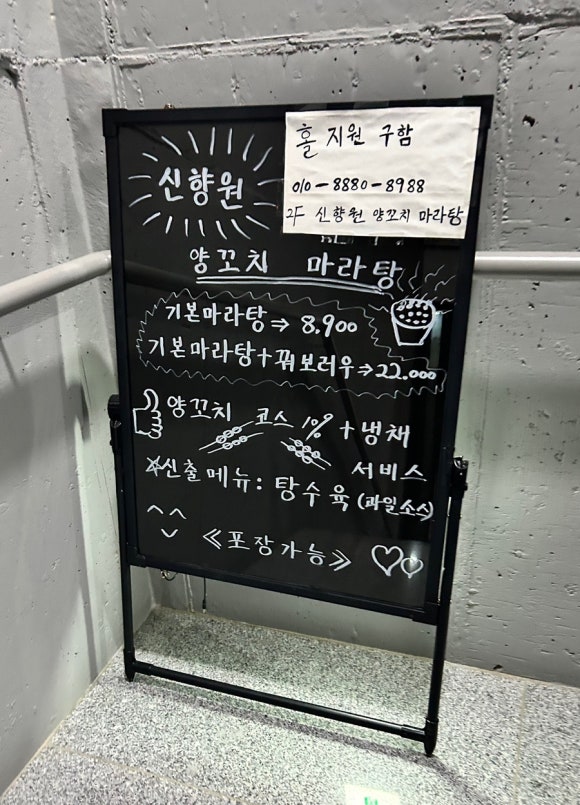 신향원
홀 지원 구함
010-8880-8988
2F 신향원 양꼬치 마라탕
양꼬치 마라탕
기본마라탕⇒ 8.900
기본마라탕+꿔보러우⇒22.000
양꼬치 코스 1% +냉채
서비스
☆신출메뉴: 탕수육(과일소스)
≪포장가능≫